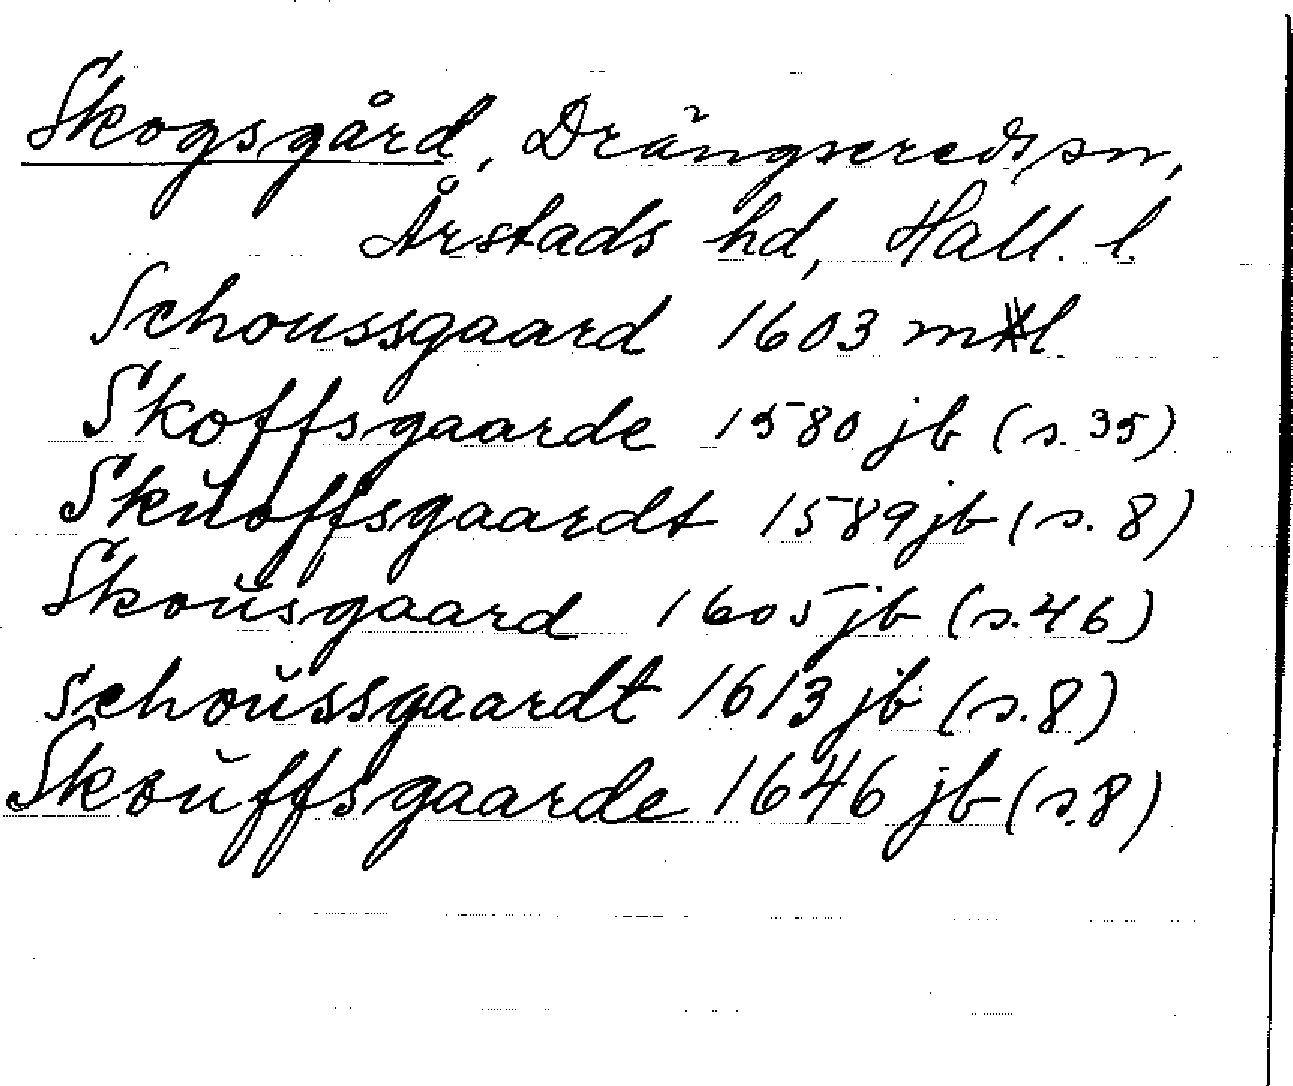 Skogsgård, Drängsereds sn,
Årstads hd, Hall. l.
Schoussgaard 1603 mtl
Skoffsgaarde 1580 jb (s. 35)
Skŭoffsgaardt 1589 jb (s. 8)
Skoŭsgaard 1605 jb (s. 46)
Schoŭssgaardt 1613 jb (s. 8)
Skoŭffsgaarde 1646 jb (s. 8)